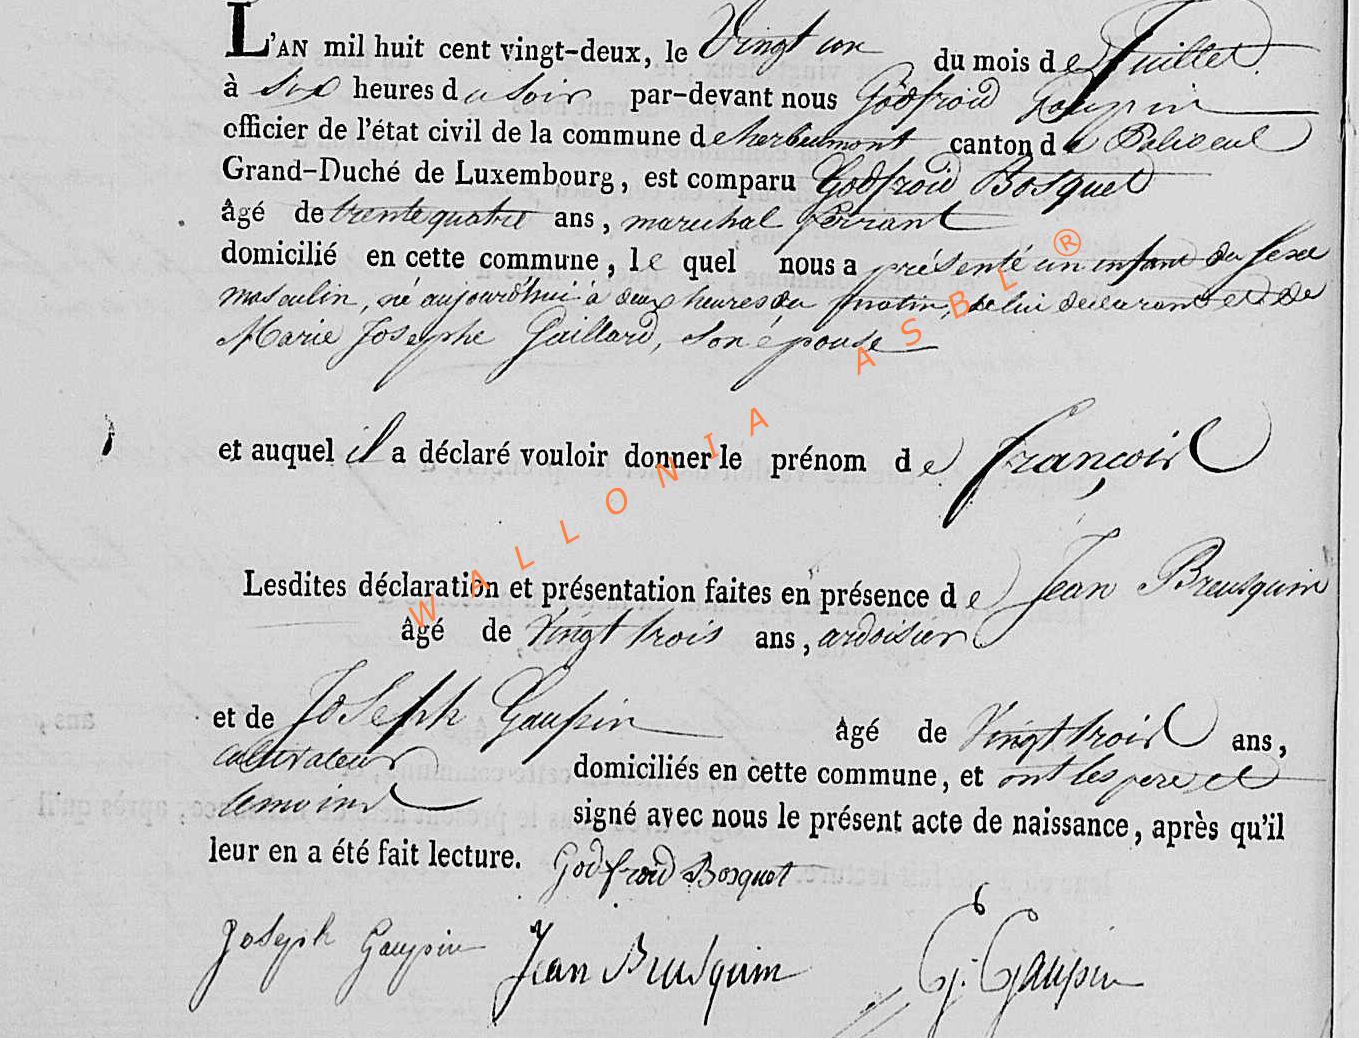 L'AN mil huit cent vingt-deux, le Vingt un du mois de Juillet
à six heures du soir par-devant nous Godfroid Gaupin
officier de l'état civil de la commune de herbeumont canton de Paliseul
Grand-Duché de Luxembourg, est comparu Godfroid Bosquet
âgé de trente quatre ans, marechal ferrant
domicilié en cette commune, le quel nous a présenté un enfant du sexe
masculin, né aujourd'hui à deux heures du matin, de lui declarant et de
Marie Josephe Gaillard, son épouse
et auquel il a déclaré vouloir donner le prénom de françois
Lesdites déclaration et présentation faites en présence de Jean Breusquin
âgé de Vingt trois ans, ardoisier
et de Joseph Gaupin âgé de Vingt trois ans,
cultivateur domiciliés en cette commune, et ont les pere et
temoins signé avec nous le présent acte de naissance, après qu'il
leur en a été fait lecture. Godfroid Bosquet
Joseph Gaupin Jean Breusquin G. Gaupin
WALLONIA ASBL ®